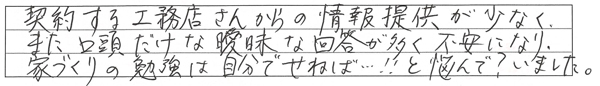 契約する工務店さんからの情報提供が少なく、
また口頭だけな曖昧な回答が多く不安になり、
家づくりの勉強は自分でせねば…!!と悩んで?いました。